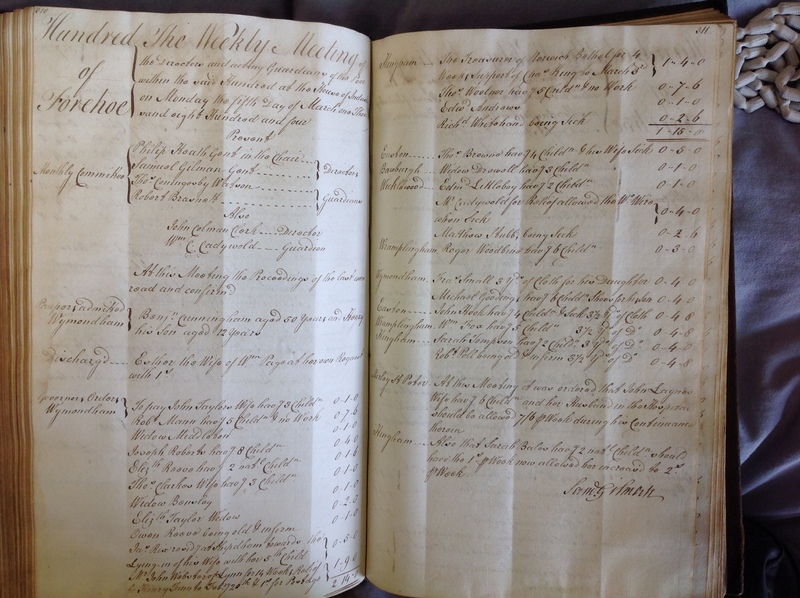 310
Hundred
of
Forehoe
The Weekly Meeting of
the Directors and acting Guardians of the Poor
within the said Hundred at the House of Industry
on Monday the fifth Day of March one Thou
sand eight Hundred and four
Present
Monthly Committee
Philip Heath Gent in the Chair
Samuel Gilman Gent
Directors
Thos Coningesby
Robert Brasnett
Guardians
Also
John Colman Clerk Director
Wm C Cadywold Guardian
At this Meeting the Proceedings of the last were
read and confirmd
Paupers admitted
Wymondham
Benjn Cunningham aged 50 Years and Henry
his Son aged 12 Years
Dischargd
Esther the Wife of Wm Page at her own Request
with 1s
Governors Orders
Wymondham
To pay John Taylors Wife hav'g 3 Childn 0-1-0
Robt Mann hav'g 5 Childn & no Work 0-7-6
Widow Middleton 0-1-0
Joseph Roberts hav'g 8 Childn 0-4-0
Elizth Reeve hav'g 2 natl Childn 0-1-6
Thos Clarkes Wife hav'g 3 Childn 0-1-0
Widow 0-1-0
Elizth Taylor Widow 0-2-0
Owen Reeve being old & infirm 0-1-0
Jas at Hepdham towards the
Lying-in of his Wife with her 5th Child 0-5-0
Mr John Webster of Lynn for 14 Weeks Relief
1-9-0
2-14-0
311
Hingham
The Treasurer of Norwich Bethel for 4
Weeks Support of Chas King to March 5th 1-4-0
Thos Woolner hav'g 5 Childn & no Work 0-7-6
Edwd Andrews 0-1-0
Richd Whitehand being Sick 0-2-6
1-15-0
Easton Thos Browne hav'g 4 Childn & his Wife Sick 0-5-0
Barnburgh Widow hav'g 3 Childn 0-1-0
Wicklewood Edmd Settleboy hav'g 2 Childn 0-1-0
Mr Cadywold for Relief allowed the Wm
when Sick 0-4-0
Mathew Stubb being Sick 0-2-6
Wramplingham Roger Woodbine hav'g 6 Childn 0-3-0
Wymondham Fras Small 3 yds of Cloth for his Daughter 0-4-0
Michael Gooding hav'g 6 Childn Shoes for his Son 0-4-0
Easton John Hook hav'g 4 Childn & Sick 3½ yds of Cloth 0-4-8
Wramplingham Wm Fox hav'g 5 Childn 3½ yds of do 0-4-8
Hingham Sarah Simpson hav'g 2 Childn 3 yds of do
Robt Poll being old & infirm 3½ yds of do 0-4-8
At this Meeting it was ordered that John Laynes
Wife hav'g 6 Childn and her Husband in the Hospital
should be allowed 7/6 p Week during his Continuance
therein
Hingham Also that Sarah Bales hav'g 2 natl Childn should
have the 1s p Week now allowed her increased to 2s
p Week